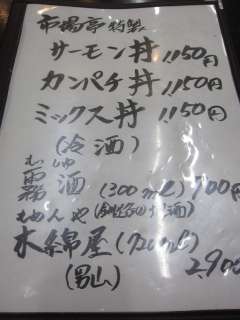 市場亭特製
サーモン丼 1,150円
カンパチ丼 1,150円
ミックス丼 1,150円
(冷酒)
霧酒 (300ml) 900円
もめんや
木綿屋 (720ml)
(男山) 2,900